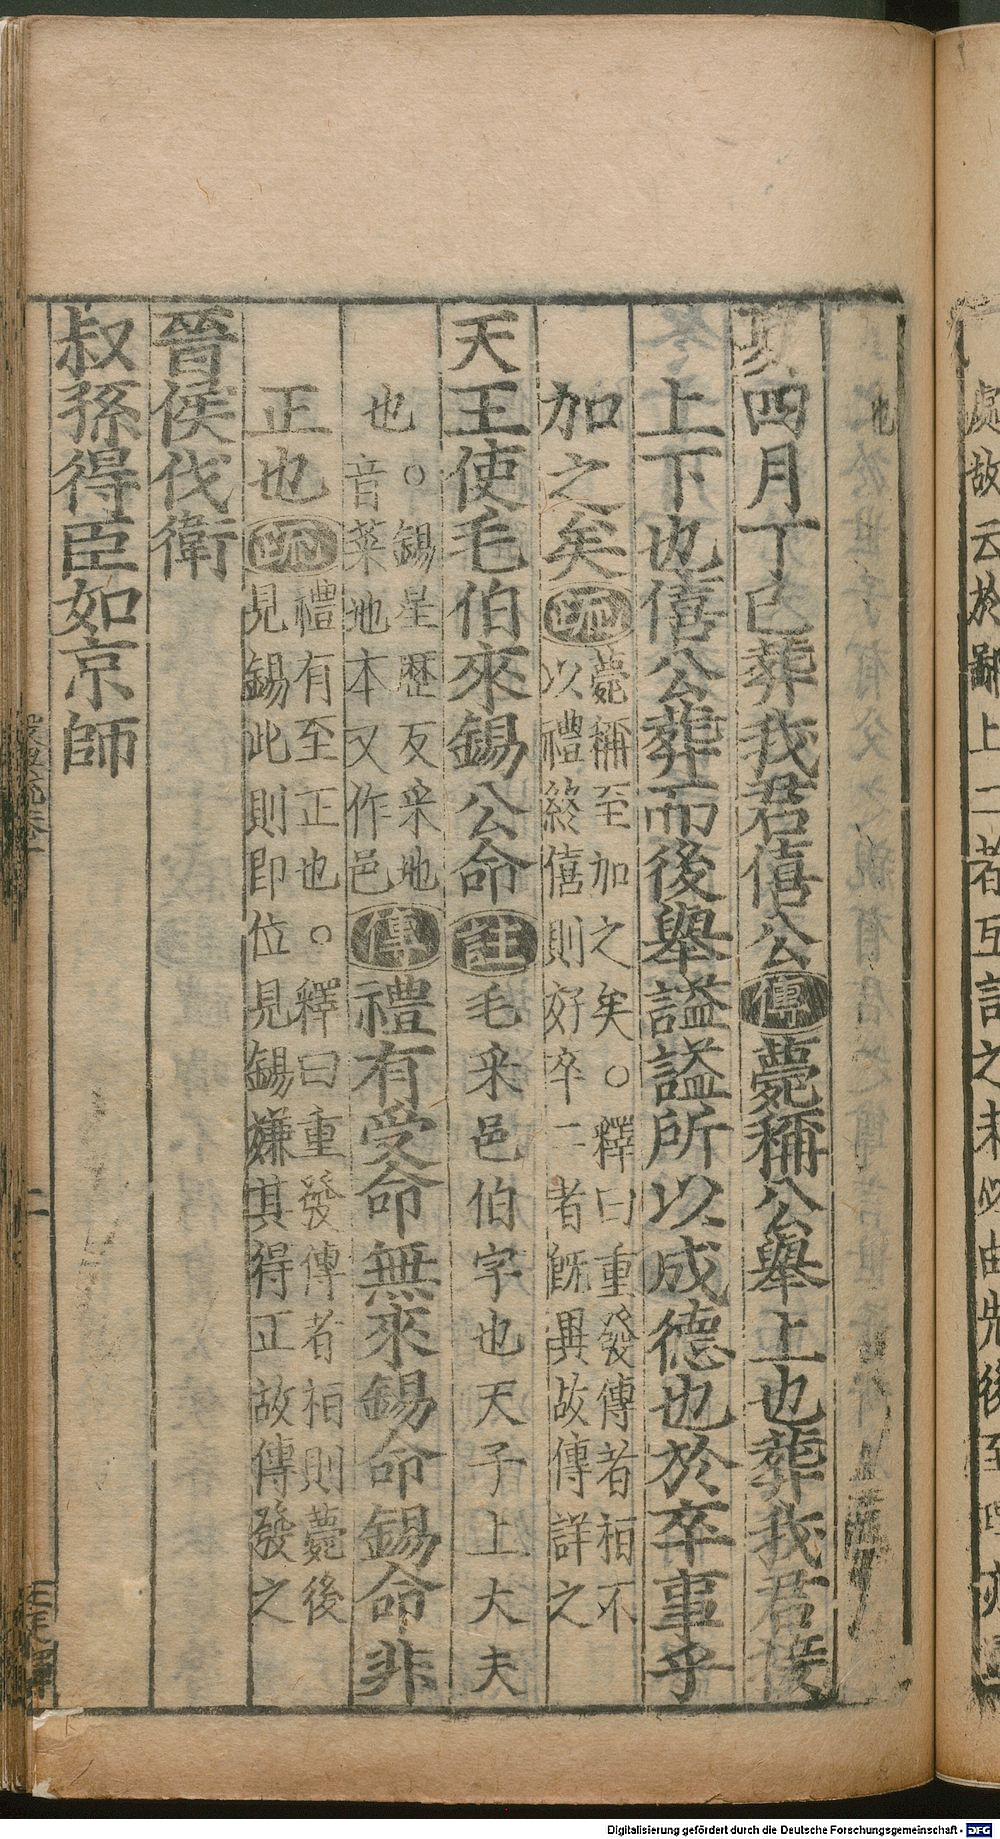 也
夏四月丁巳葬我君僖公傳薨稱公舉上也葬我君接
上下也僖公葬而後舉謚謚所以成德也於卒事乎
加之矣疏薨稱至加之矣○釋曰重發傳者桓不
以禮終僖則好卒二者旣異故傳詳之
天王使毛伯來錫公命註毛采邑伯字也天子上大夫
也○錫星歴反采地
音菜地本又作邑傳禮有受命無來錫命錫命非
正也疏禮有至正也○釋曰重發傳者桓則薨後
見錫此則即位見錫嫌其得正故傳發之
晉侯伐衛
叔孫得臣如京師
二
處故云於
上二者互言之
先後至
Digitalisierung gefördert durch die Deutsche Forschungsgemeinschaft - DFG